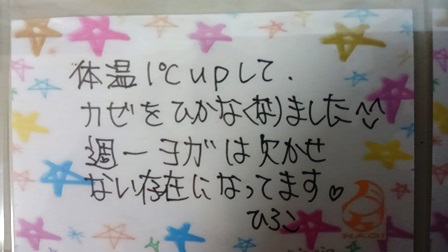 体温1℃upして、
カゼをひかなくなりました^^
週一ヨガは欠かせ
ない存在になってます♡
ひろこ